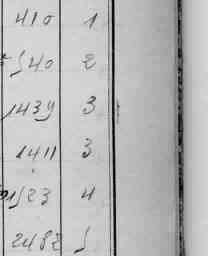 410 1
540 2
1439 3
1411 3
1523 4
2482 5